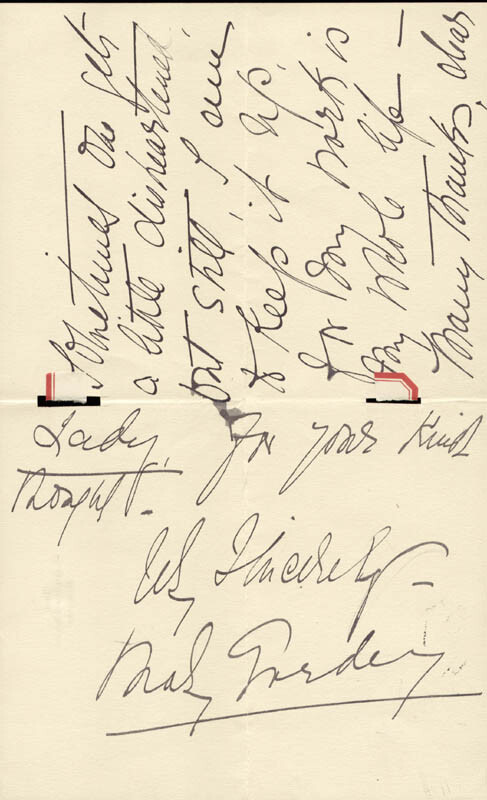 Sometimes one gets
a little disheartened
but still I aim
to keep it up.
for my work is
my whole life —
Many thanks, dear
Lady, for your kind
thought —
Sincerely —
Mary Garden